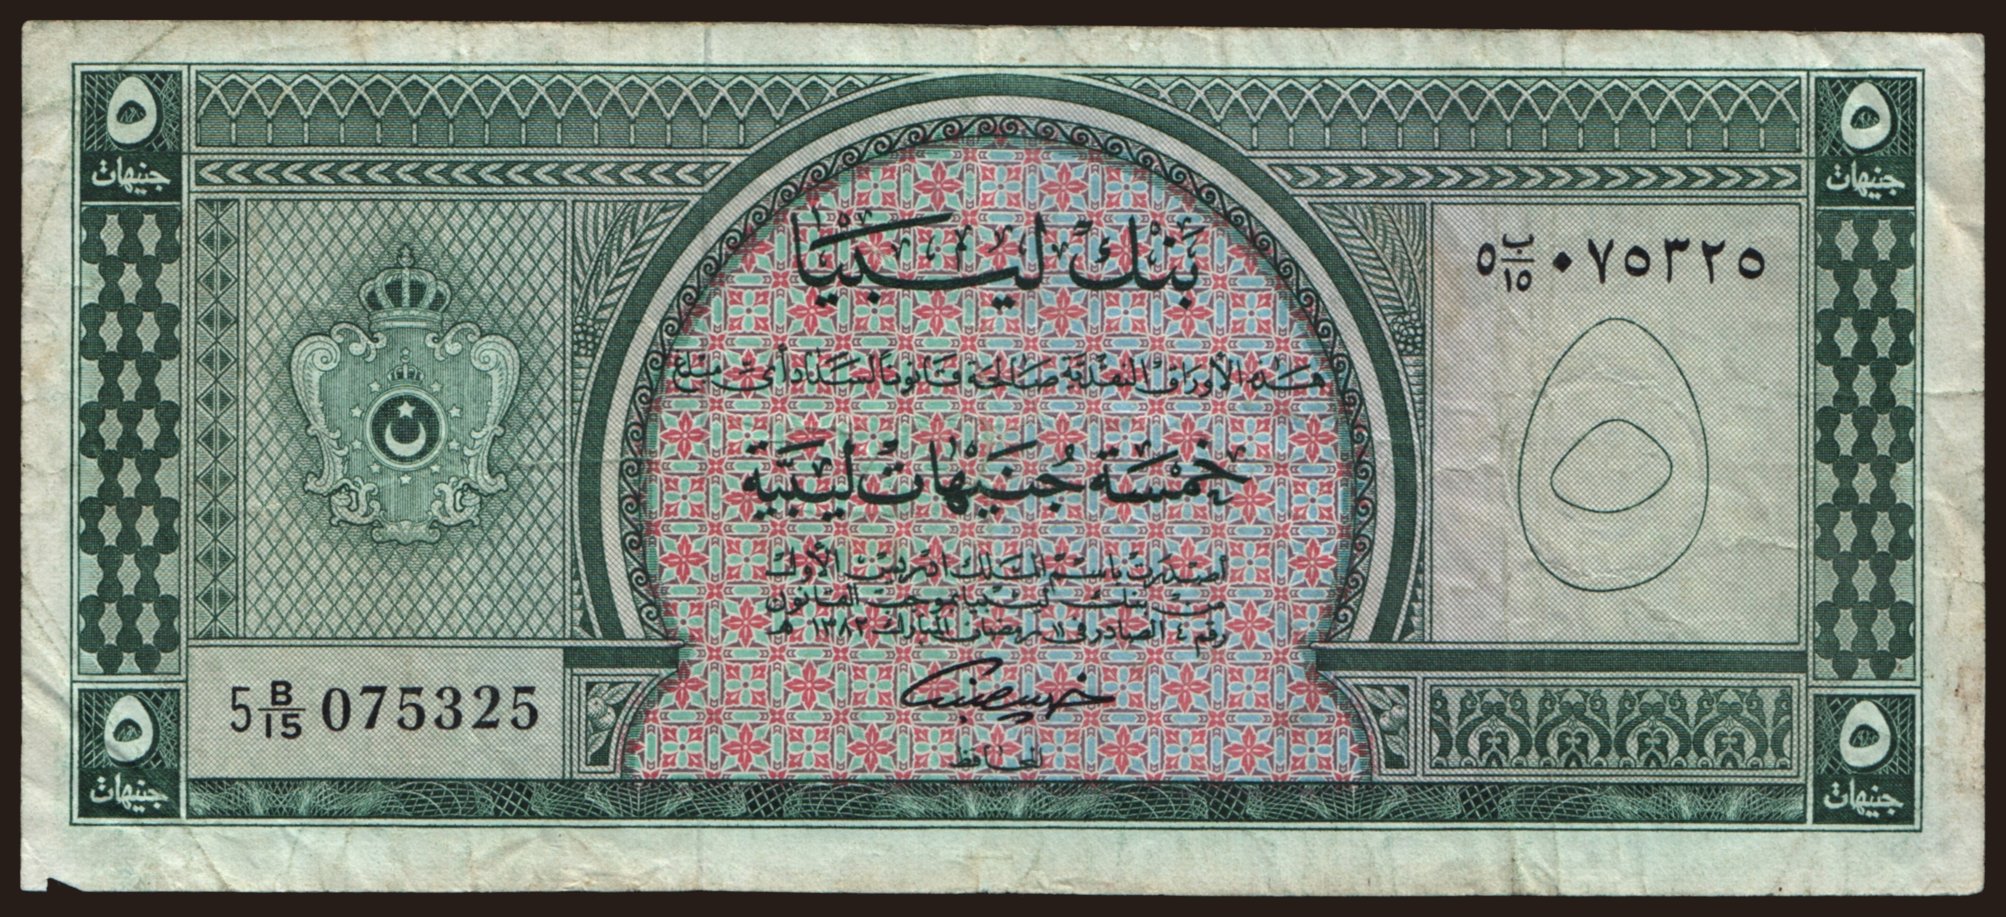 ٥
جنيهات
٥
جنيهات
بَنْكْ لِيبْيَا
٥ ب/١٥ ٠٧٥٣٢٥
هَذِهِ الأَوْرَاقُ النَّقْدِيَّةُ صَالِحَةٌ قَانُونًا لِسَدَادِ أَيِّ مَبْلَغٍ
خَمْسَةُ جُنَيْهَاتْ لِيبِيَّة
أصدرت باسم الملك ادريس الأول
من بنك ليبيا بموجب القانون
رقم ٤ الصادر في ١١ رمضان المبارك ١٣٨٢ هـ
5 B/15 075325
المحافظ
٥
جنيهات
٥
جنيهات